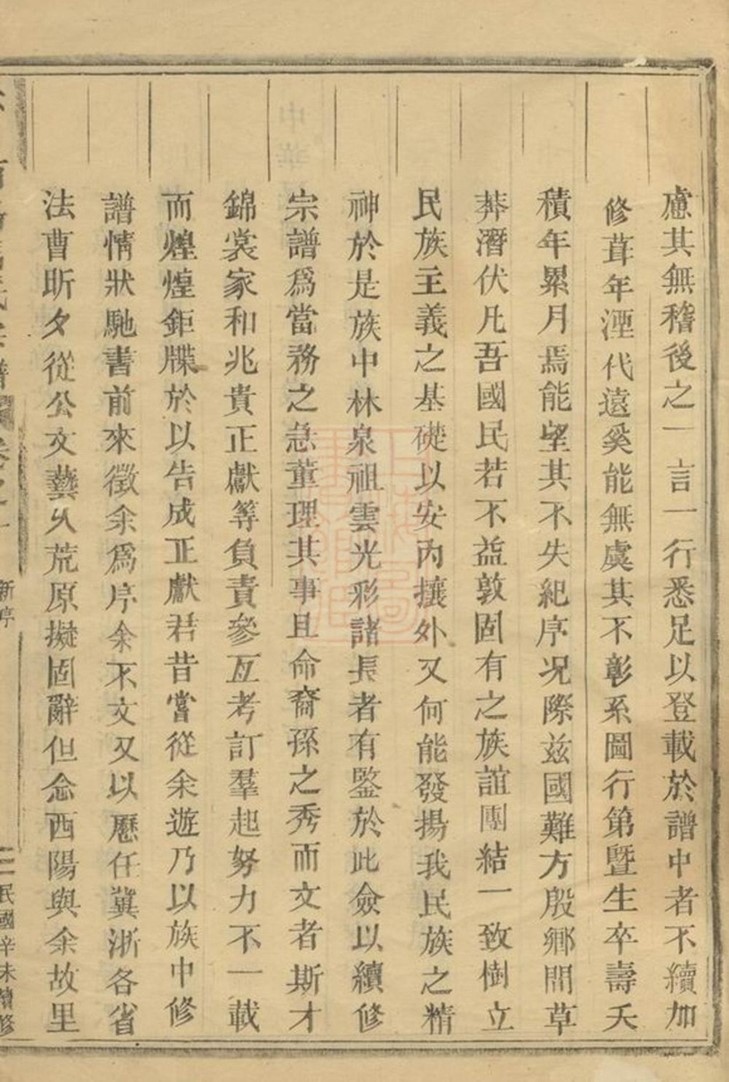 慮其無稽後之一言一行悉足以登載於譜中者不續加
修葺年湮代遠奚能無虞其不彰系圖行第暨生卒壽夭
積年累月焉能望其不失紀序况際兹國難方殷鄉閭草
莽潛伏凡吾國民若不益敦固有之族誼團結一致樹立
民族主義之基礎以安內攘外又何能發揚我民族之精
神於是族中林泉祖雲光彩諸長者有鑒於此僉以續修
宗譜爲當務之急董理其事且命裔孫之秀而文者斯才
錦裳家和兆貴正獻等負責參互考訂羣起努力不一載
而煌煌鉅牒於以告成正獻君昔嘗從余遊乃以族中修
譜情狀馳書前來徵余爲序余不文又以歷任冀浙各省
法曹昕夕從公文藝久荒原擬固辭但念西陽與余故里
新序
民國辛未續修